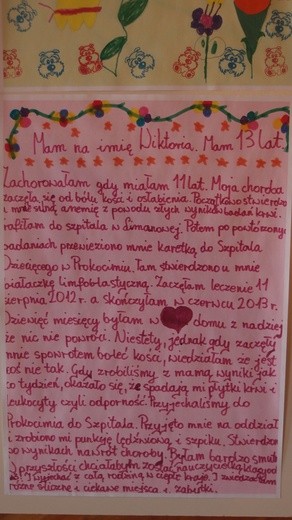 Mam na imię Wiktoria. Mam 13 lat.
Zachorowałam gdy miałam 11 lat. Moja choroba
zaczęła się od bólu kości i osłabienia. Początkowo stwierdzo
u mnie silną anemię z powodu złych wyników badań krwi.
rafiłam do szpitala w Limanowej. Potem po powtórzony
badaniach przewieziono mnie karetką do Szpitala
Dziecięcego w Prokocimiu. Tam stwierdzono u mnie
białaczkę limfoblastyczną. Zaczęłam leczenie 11
sierpnia 2012 r. a skończyłam w czerwcu 2013 r.
Dziewięć miesięcy byłam w domu z nadziej
że nic nie powróci. Niestety, jednak gdy zaczęły
mnie spowrotem boleć kości, wiedziałam że jest
coś nie tak. Gdy zrobiliśmy z mamą wyniki jak
co tydzień, okazało się, że spadają mi płytki krwi i
leukocyty czyli odporność. Przyjechaliśmy do
Prokocimia do Szpitala. Przyjęto mnie na oddział
i zrobiono mi punkcję lędźwiową i szpiku. Stwierdzon
po wynikach nawrót choroby. Byłam bardzo smut
W przyszłości chciałabym zostać nauczycielką
I wyjechać z całą rodziną w ciepłe kraje. I zwiedzać
różne śliczne i ciekawe miejsca i zabytki.